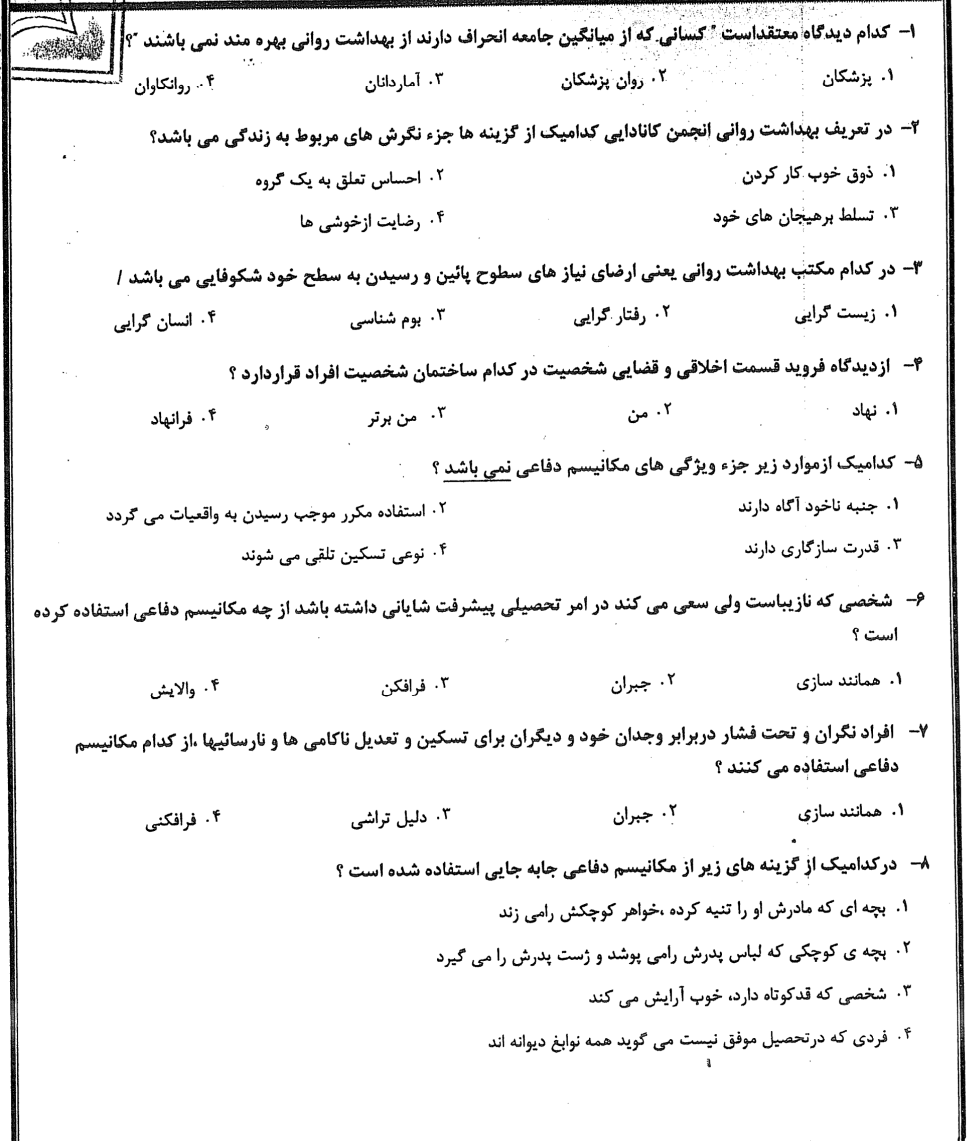 ۱- کدام دیدگاه معتقداست " کسانی که از میانگین جامعه انحراف دارند از بهداشت روانی بهره مند نمی باشند "؟
۱. پزشکان ۲. روان پزشکان ۳. آماردانان ۴. روانکاوان
۲- در تعریف بهداشت روانی انجمن کانادایی کدامیک از گزینه ها جزء نگرش های مربوط به زندگی می باشد؟
۱. ذوق خوب کار کردن ۲. احساس تعلق به یک گروه
۳. تسلط برهیجان های خود ۴. رضایت ازخوشی ها
۳- در کدام مکتب بهداشت روانی یعنی ارضای نیاز های سطوح پائین و رسیدن به سطح خود شکوفایی می باشد /
۱. زیست گرایی ۲. رفتار گرایی ۳. بوم شناسی ۴. انسان گرایی
۴- ازدیدگاه فروید قسمت اخلاقی و قضایی شخصیت در کدام ساختمان شخصیت افراد قراردارد ؟
۱. نهاد ۲. من ۳. من برتر ۴. فرانهاد
۵- کدامیک ازموارد زیر جزء ویژگی های مکانیسم دفاعی نمی باشد ؟
۱. جنبه ناخود آگاه دارند ۲. استفاده مکرر موجب رسیدن به واقعیات می گردد
۳. قدرت سازگاری دارند ۴. نوعی تسکین تلقی می شوند
۶- شخصی که نازیباست ولی سعی می کند در امر تحصیلی پیشرفت شایانی داشته باشد از چه مکانیسم دفاعی استفاده کرده
است ؟
۱. همانند سازی ۲. جبران ۳. فرافکن ۴. والایش
۷- افراد نگران و تحت فشار دربرابر وجدان خود و دیگران برای تسکین و تعدیل ناکامی ها و نارسائیها ،از کدام مکانیسم
دفاعی استفاده می کنند ؟
۱. همانند سازی ۲. جبران ۳. دلیل تراشی ۴. فرافکنی
۸- درکدامیک از گزینه های زیر از مکانیسم دفاعی جابه جایی استفاده شده است ؟
۱. بچه ای که مادرش او را تنیه کرده ،خواهر کوچکش رامی زند
۲. بچه ی کوچکی که لباس پدرش رامی پوشد و ژست پدرش را می گیرد
۳. شخصی که قدکوتاه دارد، خوب آرایش می کند
۴. فردی که درتحصیل موفق نیست می گوید همه نوابغ دیوانه اند